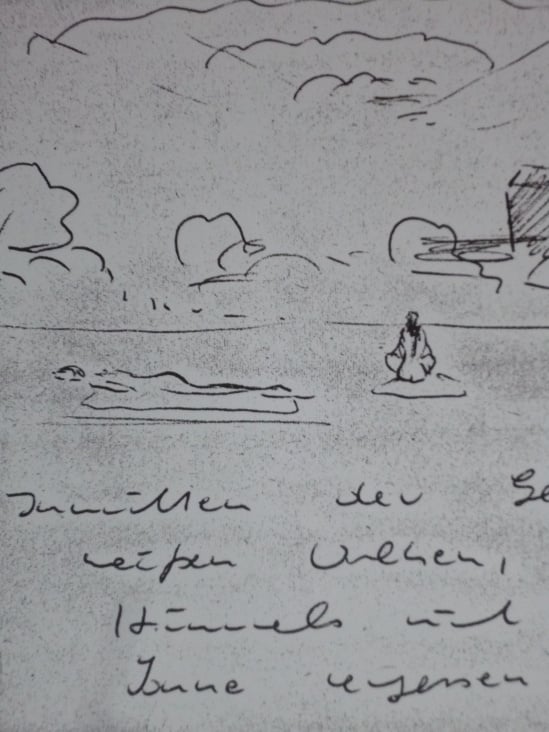 Inmitten der
weißen Wolken,
Himmels und
Sonne vergessen